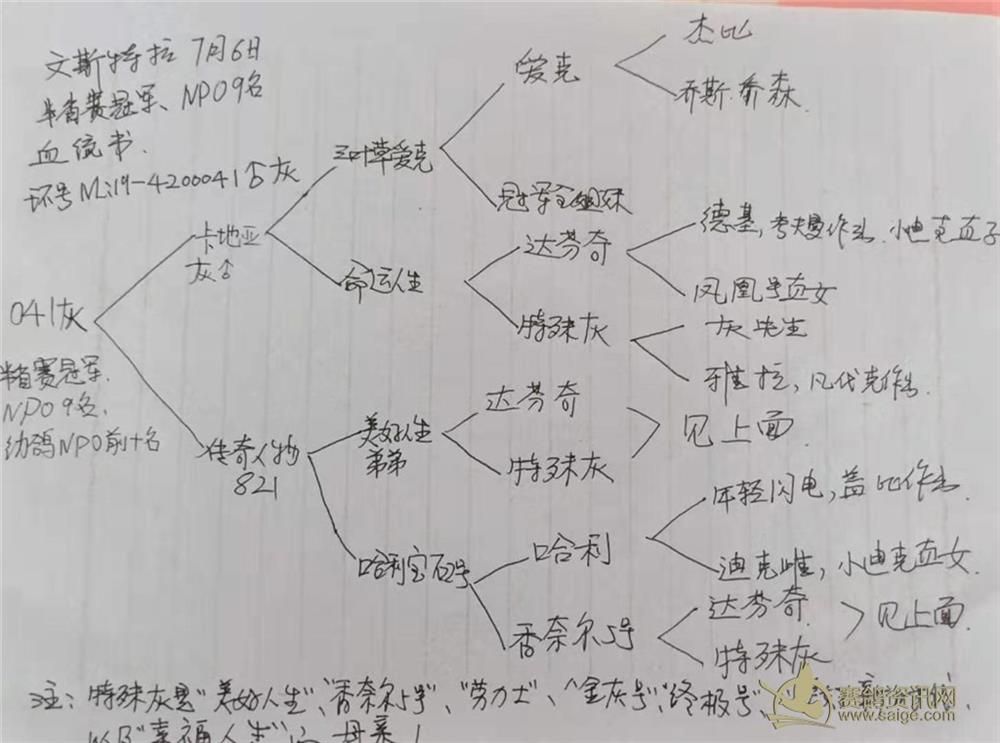 文斯特拉 7月6日
半省赛冠军、NPO9名
血统书.
环号Nl19-4200041 灰
041灰
半省赛冠军.
NPO9名.
幼鸽NPO前十名
卡地亚
灰
传奇人物
821
三叶草爱克
命运人生
美好人生
弟弟
哈利宝石号
爱克
冠军全姐妹
达芬奇
特殊灰
达芬奇
特殊灰
哈利
香奈尔5号
杰比
乔斯.乔森
德基,考夫曼作出.小迪克直子
凤凰号直女
灰先生
雅拉,凡代克作出.
见上面.
年轻闪电,盖比作出.
迪克雌,小迪克直女.
达芬奇
特殊灰
见上面.
注:特殊灰是"美好人生"、"香奈尔5号"、"劳力士"、"金灰号"、"终极号"、
以及"幸福人生"的母亲!
赛鸽资讯网
www.saige.com